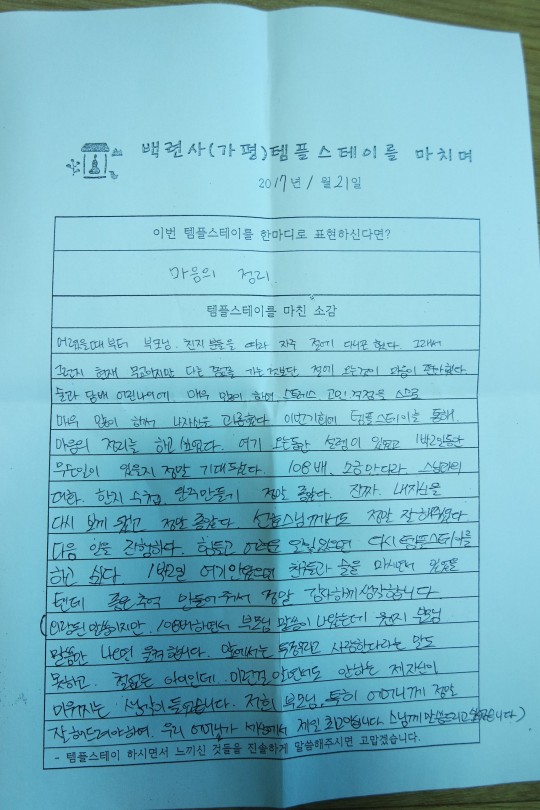 백련사(가평)템플스테이를 마치며
2017년 1월 21일
이번 템플스테이를 한마디로 표현하신다면?
마음의 정리
템플스테이를 마친 소감
어렸을때부터 부모님. 친지 분들을 따라 자주 절에 다니곤 했다. 그래서
그런지 현재 무교이지만 다른 종교를 가는것보단 절에 오는것이 마음이 편안했다.
술과 담배 어린나이에 매우 많이 하며, 스트레스 고민 걱정을 스스로
매우 많이 하며 나자신도 괴롭혔다 이번기회에 템플스테이를 통해
마음의 정리를 하고싶었다. 여기 오는동안 설렘이 있었고 1박2일동안
무슨일이 있을지 정말 기대됐다. 108배. 소금만다라. 스님과의
대화. 한지 수첩. 만들기 정말 좋았다. 진짜. 내자신을
다시 보게 됐고 정말 좋았다. 스님께서도 정말 잘해주셨다.
다음 안을 간절하다. 힘들고 어려운 일있으면 다시 템플스테이를
하고 싶다 1박2일 여기안왔으면 친구들과 술을 마시면서 있었을
텐데 좋은 추억 만들어주셔서 정말 감사하게 생각합니다
(외람된 말씀이지만. 108배하면서 부모님 말씀이 나왔는데 유독 부모님
말씀만 나오면 울컥합니다. 앞에서는 무뚝뚝하고 사랑한다라는 말도
못하고. 철없는 아이인데. 이런걸 알면서도 안하는 제자신이
미워지는 생각이 듭니다. 저희 부모님. 특히 어머니께 정말
잘해드려야하며. 우리 어머니가 세상에서 제일 최고입니다. 스님께 말씀드리고싶었습니다)
- 템플스테이 하시면서 느끼신 것들을 진솔하게 말씀해주시면 고맙겠습니다.